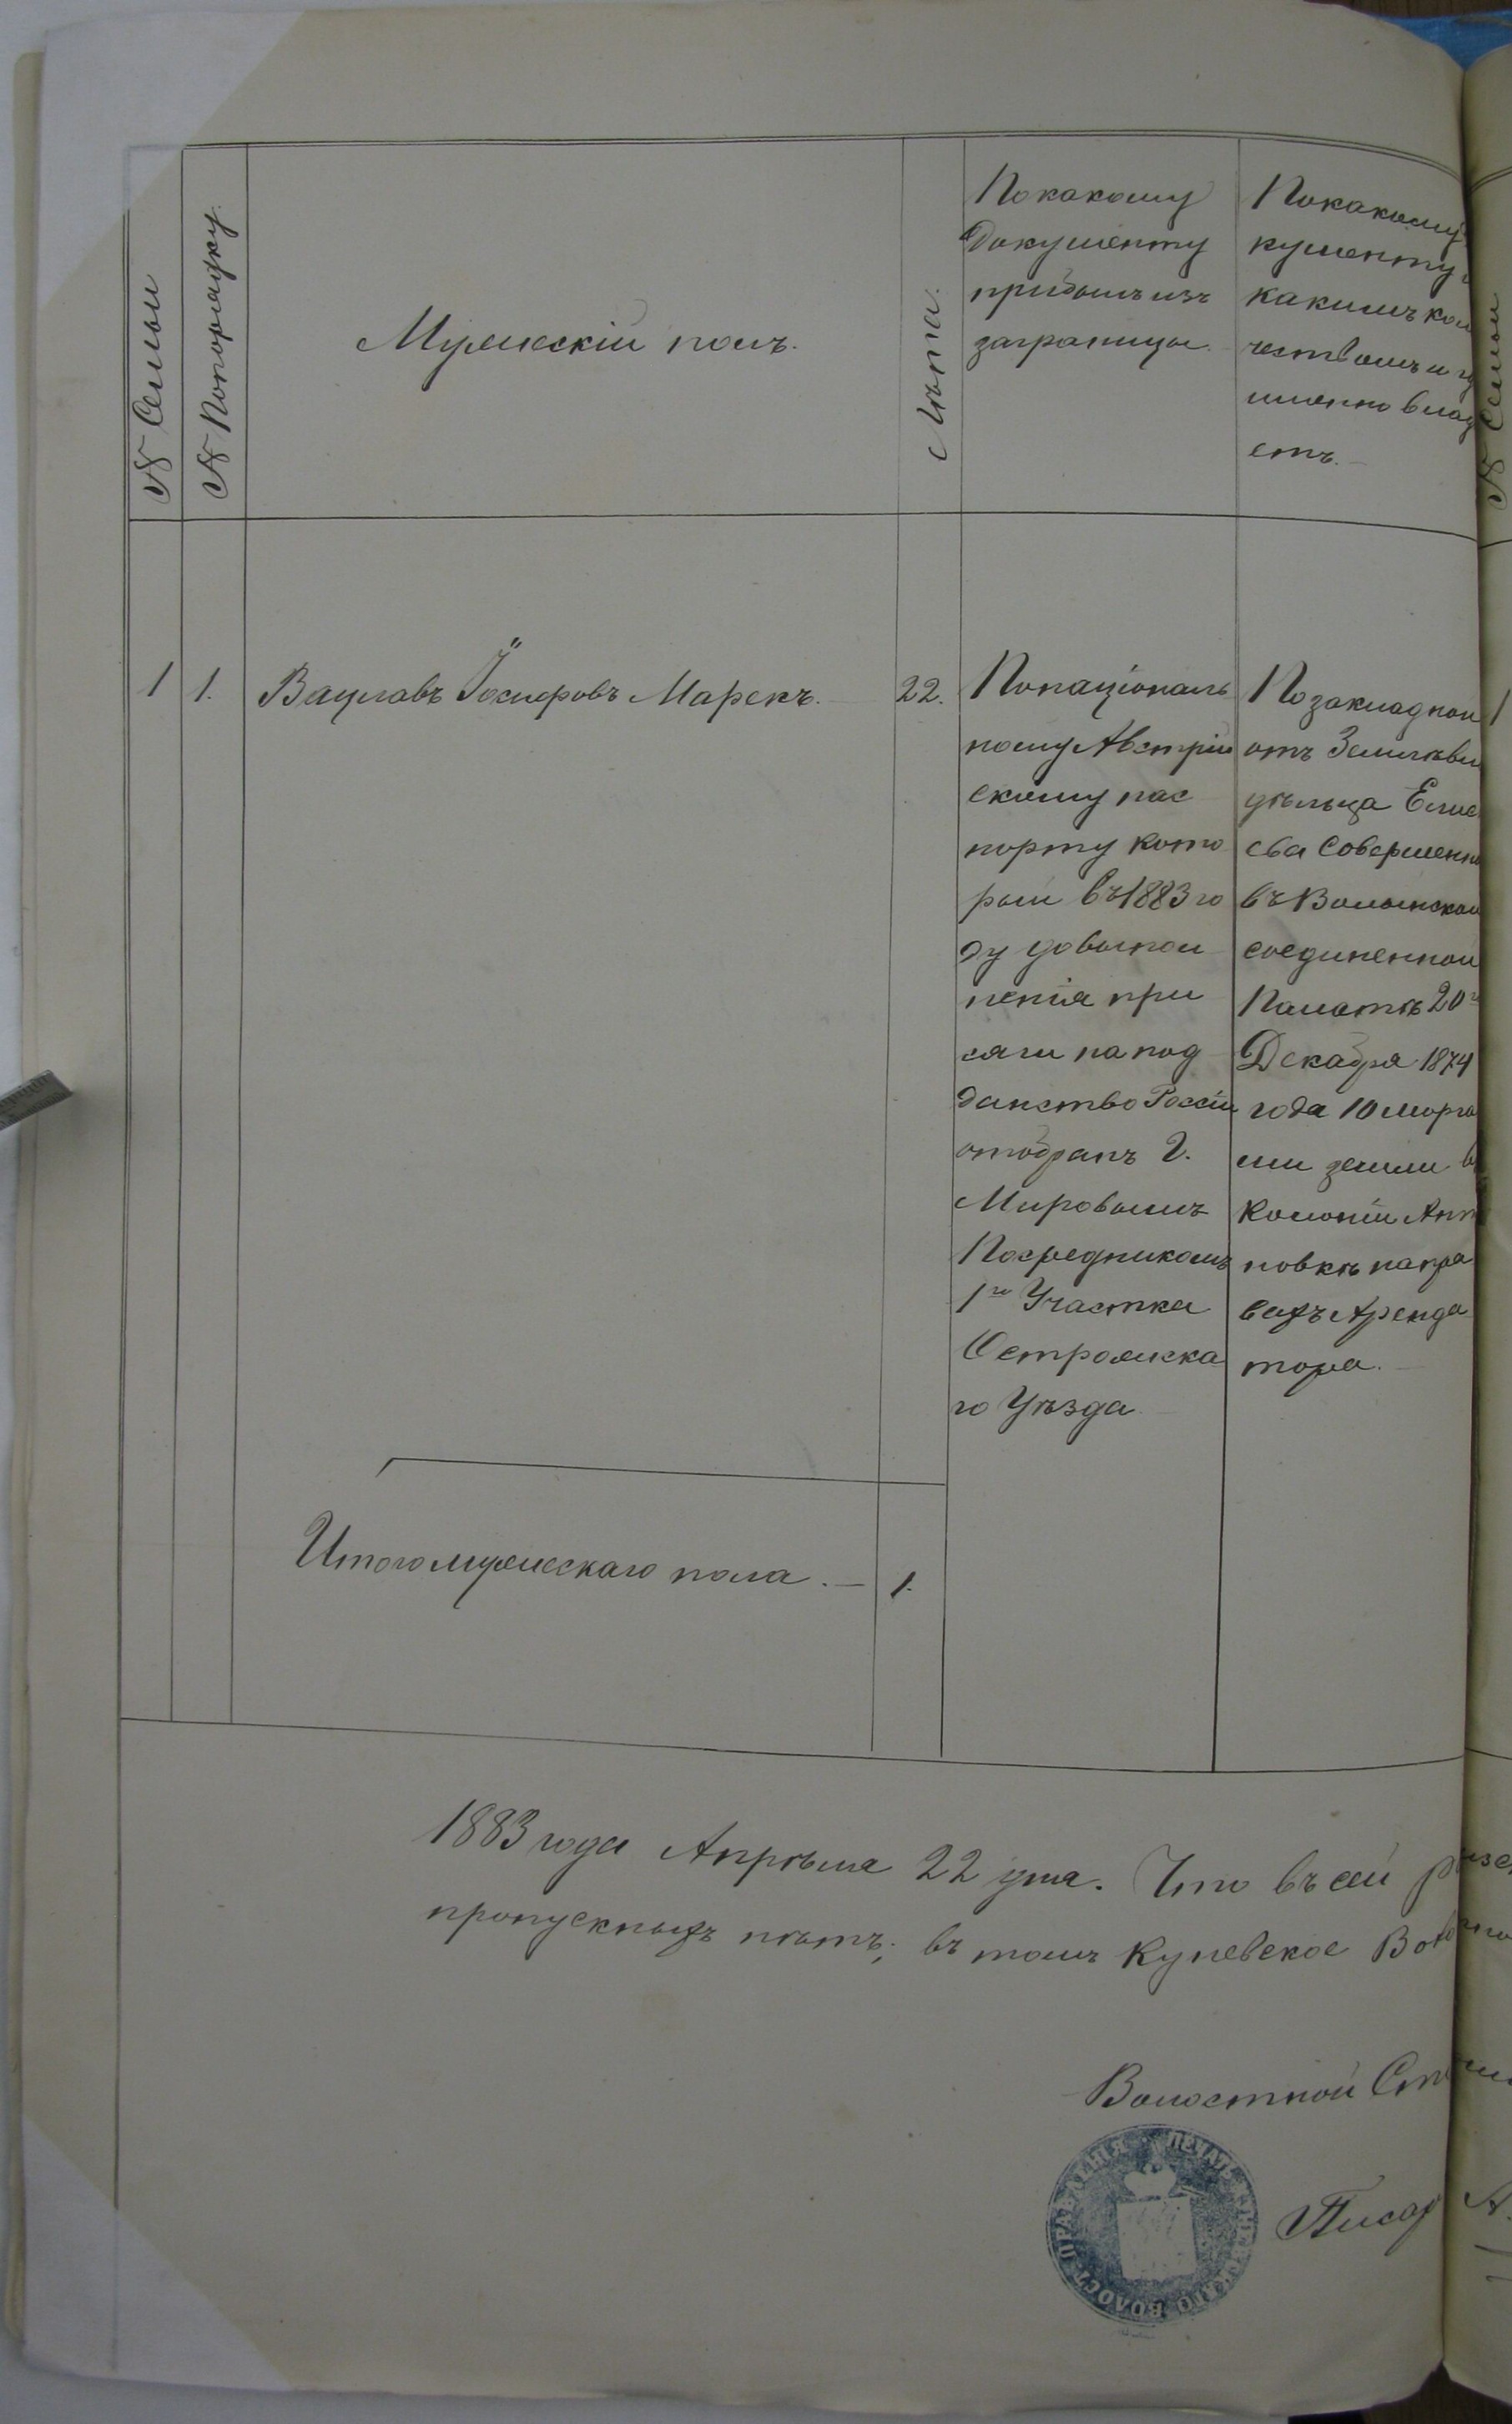 № Семьи
№ Попорядку.
Мужескій полъ.
Лѣта.
Покакому
Документу
прибылъ изъ
заграницы.
Покакому
кументу
какимъ кол
чествомъ и
именно влад
етъ.
1
1.
Вацлавъ Іосифовъ Марекъ.
22.
Понаціональ
ному Австрій
скому пас
порту кото
рый въ 1883 го
ду довыпол
ненія при
сяги на под
данство Россіи
отобранъ Г.
Мировымъ
Посредникомъ
1го Участка
Острожска
го Уѣзда
Позакладной
отъ Землевл
дѣльца Елис
ева Совершенно
въ Волынской
соединенной
Палатѣ 20го
Декабря 1874
года 10 морга
ми земли в
Колоніи Ант
новкѣ на пра
вахъ Аренда
тора.
Итого мужескаго пола. — 1.
1883 года Апрѣля 22 дня. Что въ сей
пропускныхъ нѣтъ, въ томъ Куневское
Волостной Ст
Писар
ПЕЧАТЬ КУНЕВСКАГО ВОЛОСТ. ПРАВЛЕНІЯ
№ Семьи
1